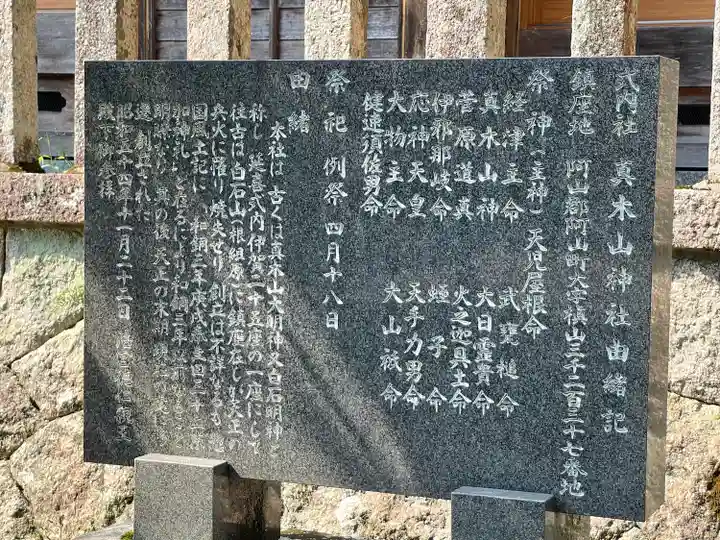 式内社 真木山神社由緒記
鎮座地 阿山郡阿山町大字槙山三千二百三十七番地
祭神(主神) 天児屋根命
経津主命 武甕槌命
真木山神 大日孁貴命
菅原道真 火之迦具土命
伊那那岐命 蛭子命
応神天皇 天手力男命
大物主命 大山祇命
健速須佐男命
祭祀 例祭 四月十八日
由緒
本社は、古くは真木山大明神又白石明神と
称し、延喜式内伊賀二十五座の一座にして
往古は白石山根組原に鎮座在しが天正の
兵火に罹り焼失せり、創立は不詳なるも
国風土記に、和銅三年庚戌
加神礼、と在るにより和銅三年
明らか、其の後、天正の末期
遷、創立された
昭和五十四年十一月二十三日 浩宮徳仁親王
殿下御参拝